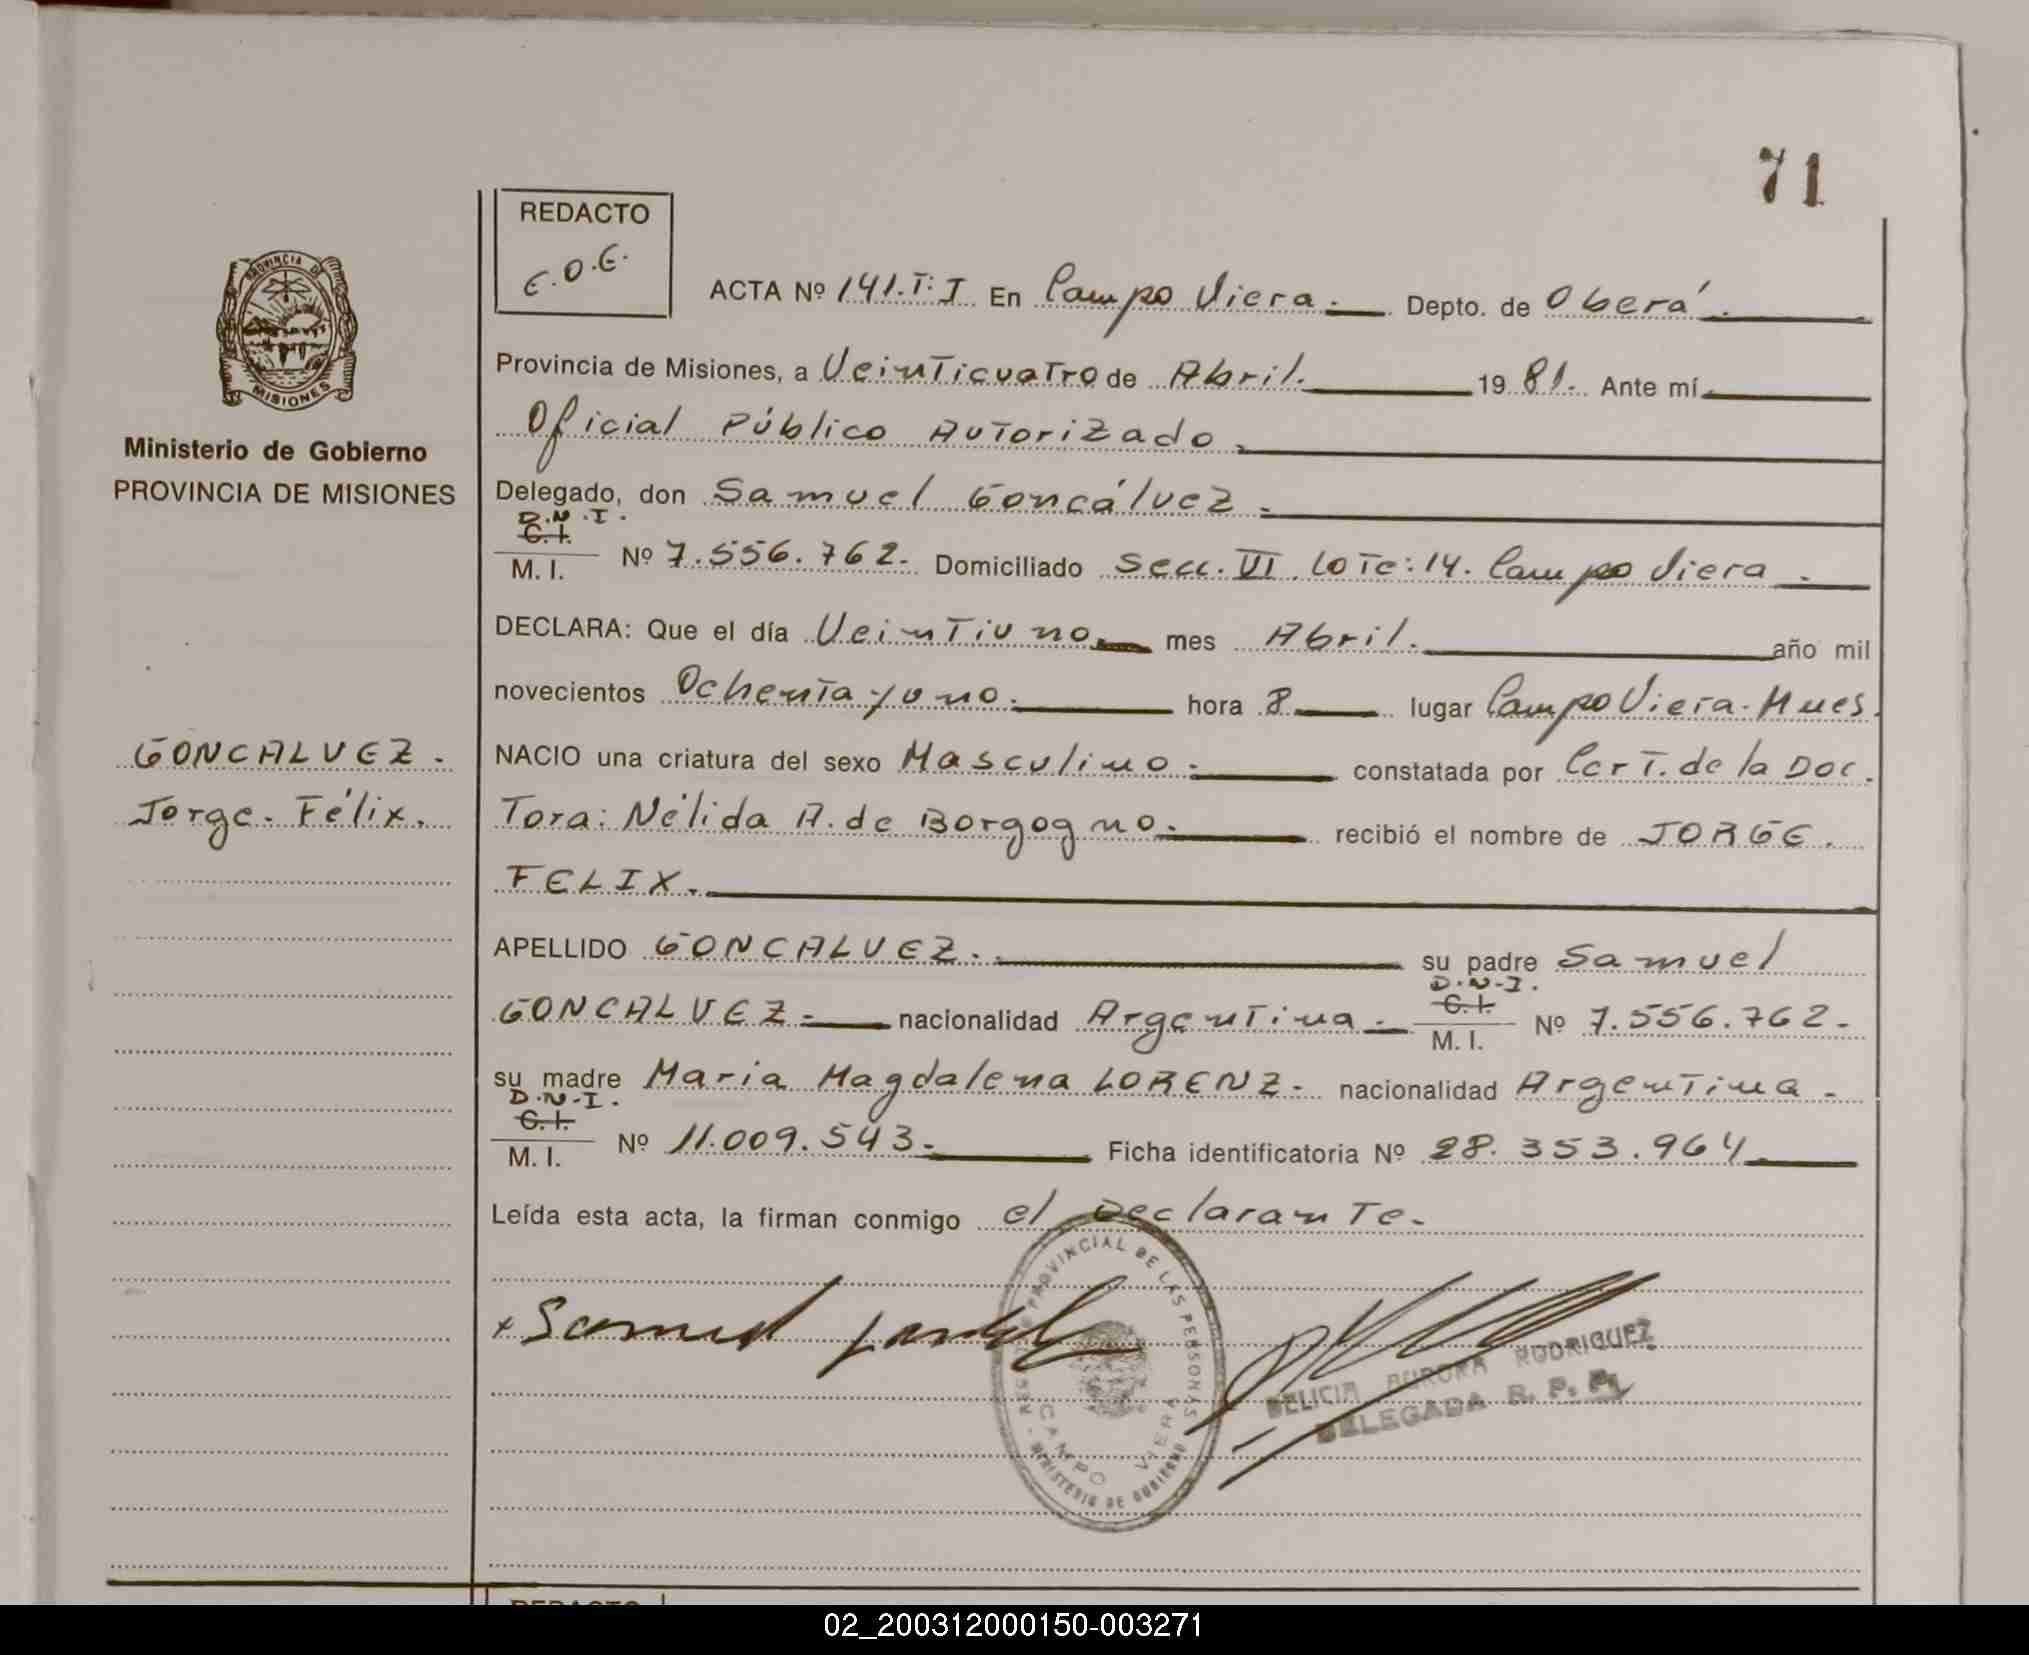 71
REDACTO
E.O.E.
PROVINCIA DE
MISIONES
Ministerio de Gobierno
PROVINCIA DE MISIONES
ACTA Nº 141.T:I En Campo Viera.- Depto. de Oberá.
Provincia de Misiones, a Veinticuatro de Abril. 19 81. Ante mí
Oficial Público Autorizado.
Delegado, don Samuel Goncálvez.
D.N.I.
C.I.
M. I. Nº 7.556.762.- Domiciliado Secc. VI. Lote: 14. Campo Viera.
DECLARA: Que el día Veintiuno. mes Abril. año mil
novecientos Ochenta y uno. hora 8 lugar Campo Viera. Mnes.
GONCALVEZ. NACIO una criatura del sexo Masculino. constatada por Cert. de la Doc.
Jorge. Félix. Tora: Nélida A. de Borgogno. recibió el nombre de JORGE.
FELIX.
APELLIDO GONCALVEZ. su padre Samuel
D.N.I.
C.I.
GONCALVEZ.- nacionalidad Argentina.- M. I. Nº 7.556.762.-
su madre Maria Magdalena LORENZ.- nacionalidad Argentina.-
D.N.I.
C.I.
M. I. Nº 11.009.543.- Ficha identificatoria Nº 28.353.964
Leída esta acta, la firman conmigo el Declarante.
x Samuel
PROVINCIAL DE LAS PERSONAS
CAMPO VIERA
MINISTERIO DE GOBIERNO
DELICIA AURORA RODRIGUEZ
DELEGADA R. P. P.
REDACTO
02_200312000150-003271